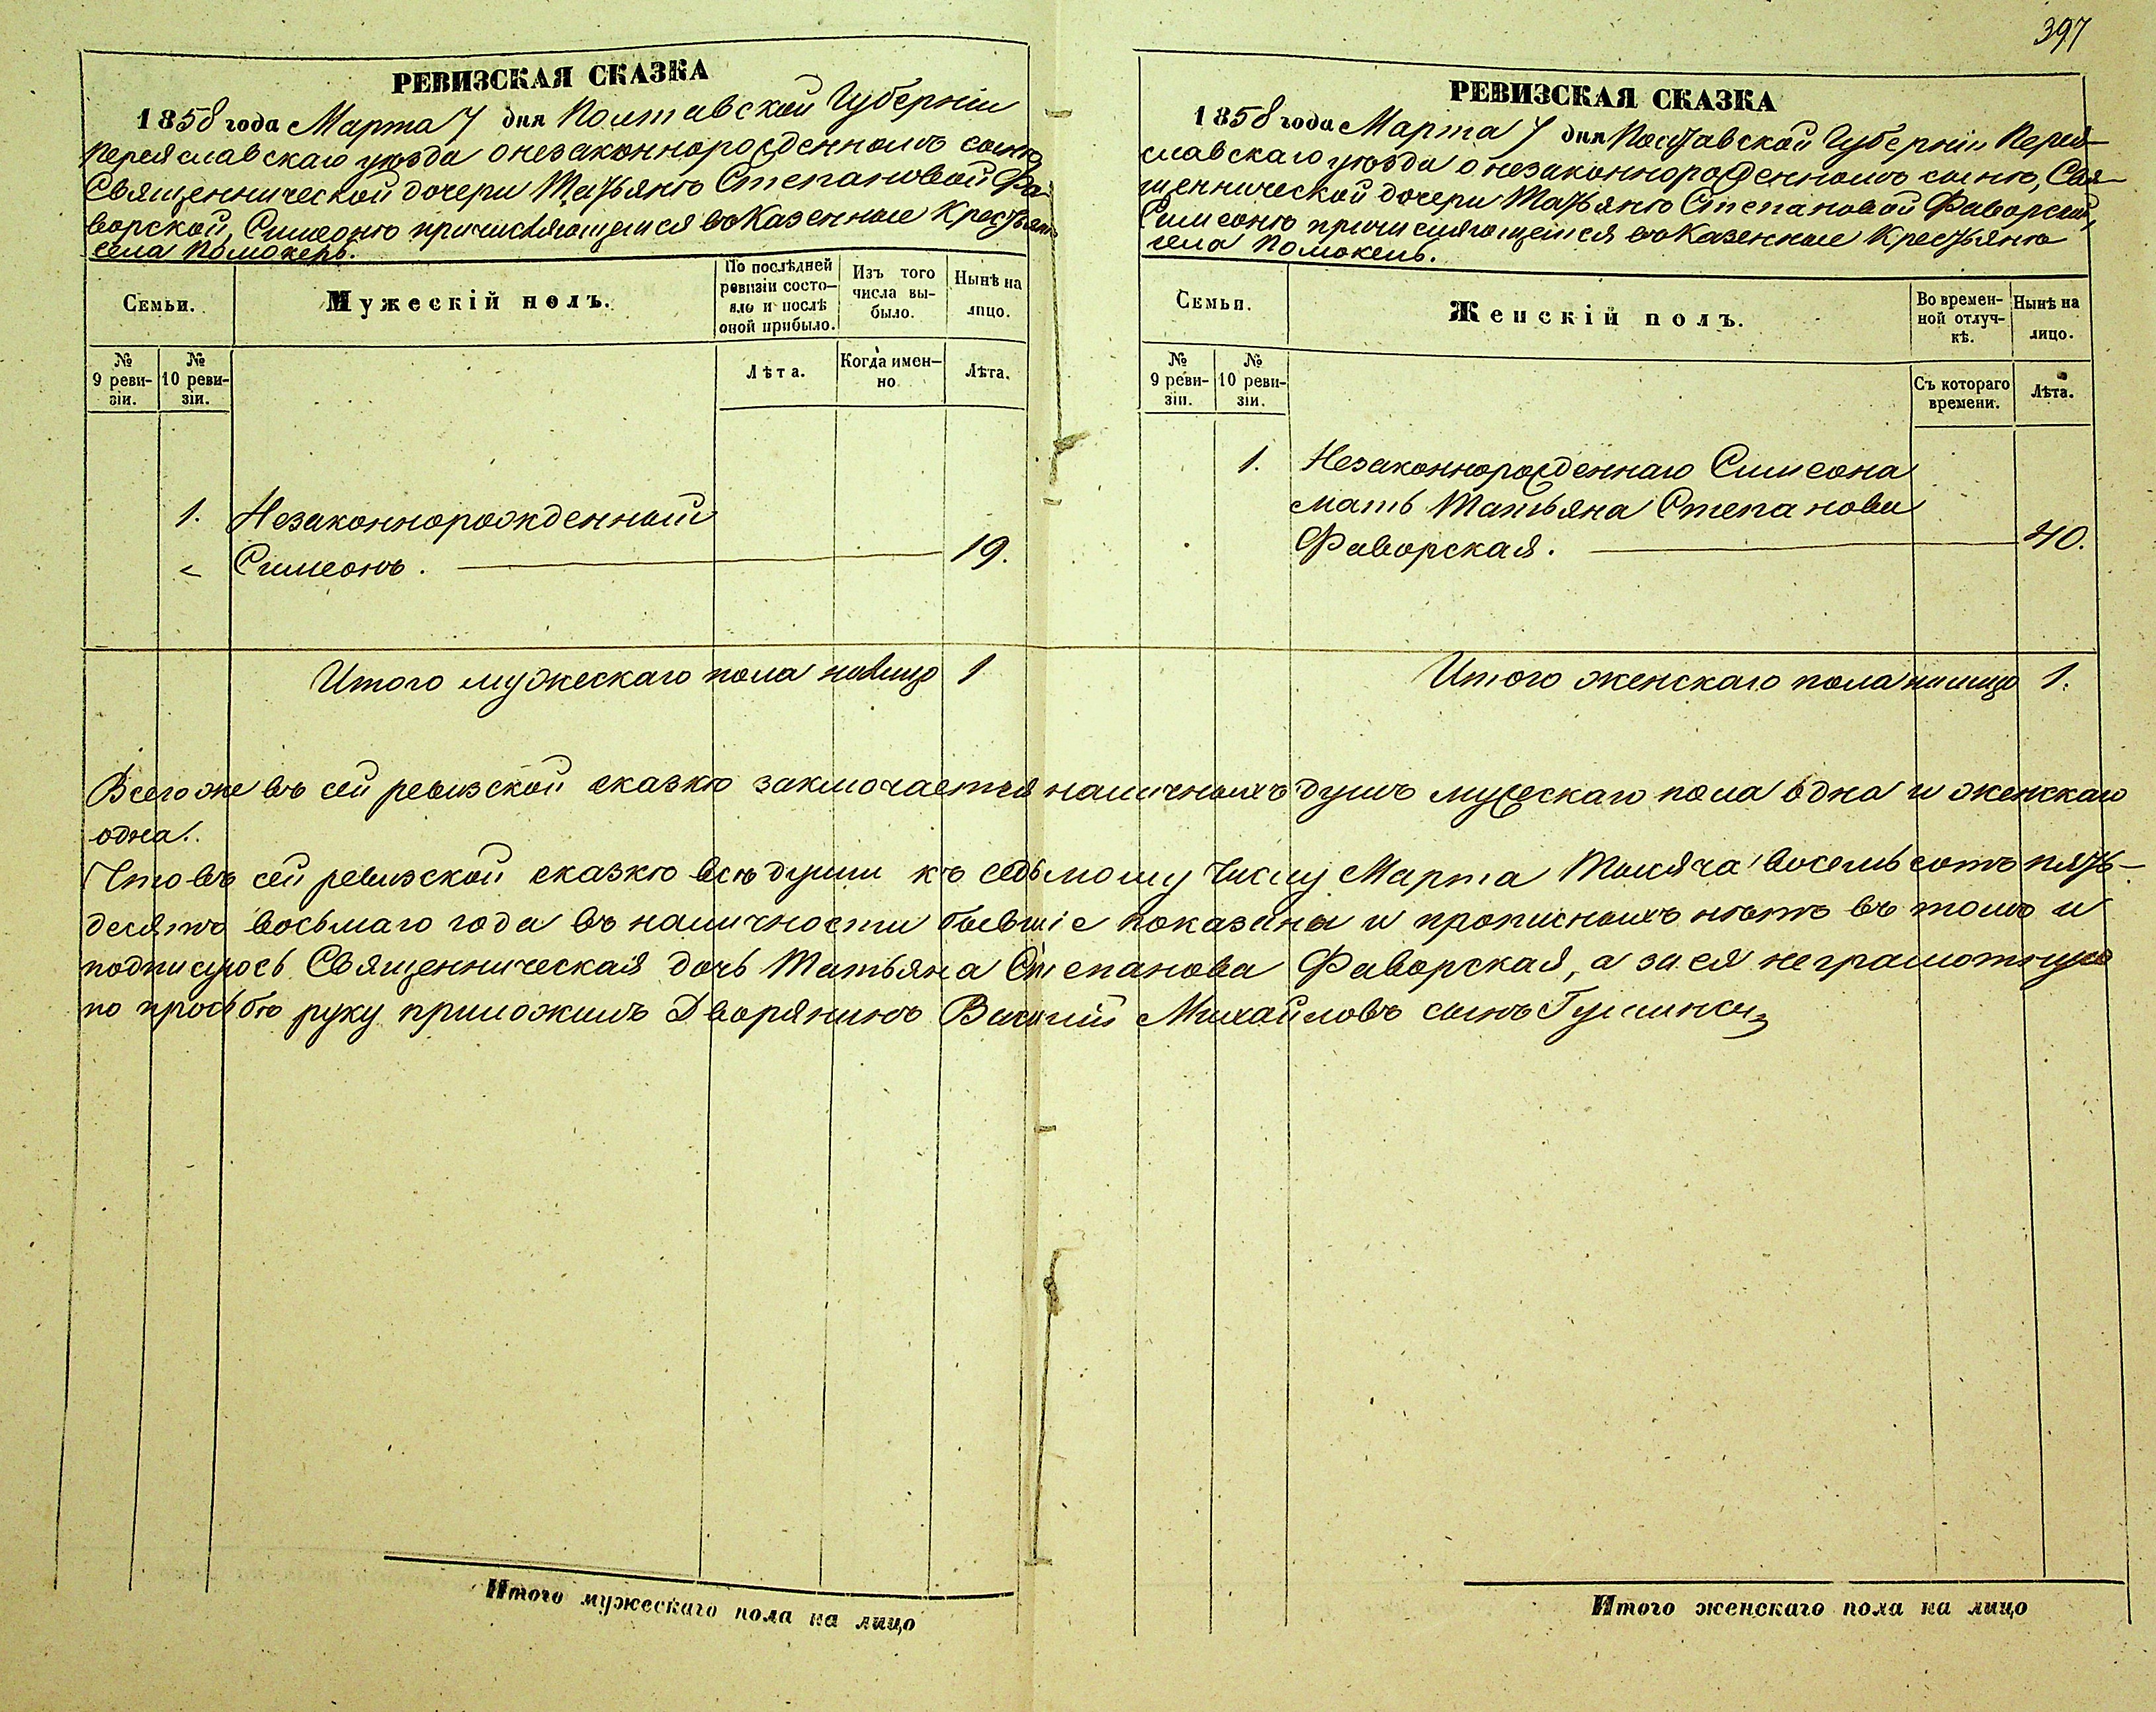 397
РЕВИЗСКАЯ СКАЗКА
1858 года Марта 7 дня Полтавской Губерніи
Переяславскаго уѣзда о незаконнорожденномъ сынѣ,
Священнической дочери Татьянѣ Степановой Фа-
ворской, Симеонѣ причисляющемся въ Казенные Крестьяне
села Помокель.
Семьи.
Мужескій полъ.
По послѣдней ревизіи состо-
яло и послѣ оной прибыло.
Изъ того числа вы-
было.
Нынѣ на лицо.
№ 9 реви-
зіи.
№ 10 реви-
зіи.
Лѣта.
Когда имен-
но
Лѣта.
1. Незаконнорожденный
Симеонъ. 19.
Итого мужескаго пола налицо 1
РЕВИЗСКАЯ СКАЗКА
1858 года Марта 7 дня Полтавской Губерніи Перея-
славскаго уѣзда о незаконнорожденномъ сынѣ, Свя-
щеннической дочери Татьянѣ Степановой Фаворской,
Симеонѣ причисляющемся въ Казенные Крестьянѣ
села Помокель.
Семьи.
Женскій полъ.
Во времен-
ной отлуч-
кѣ.
Нынѣ на лицо.
№ 9 реви-
зіи.
№ 10 реви-
зіи.
Съ котораго времени.
Лѣта.
1. Незаконнорожденнаго Симеона
мать Татьяна Степанова
Фаворская. 40.
Итого женскаго пола налицо 1.
Всего же въ сей ревизской сказкѣ заключается наличныхъ душъ мужескаго пола одна и женскаго
одна.
Что въ сей ревизской сказкѣ всѣ души къ седьмому числу Марта Тысяча восемь сотъ пять-
десятъ восьмаго года въ наличности бывшіе показаны и прописныхъ нѣтъ въ томъ и
подписуюсь Священническая дочь Татьяна Степанова Фаворская, а за ея неграмотную
по просьбѣ руку приложилъ Дворянинъ Михайловъ сынъ
Итого мужескаго пола на лицо
Итого женскаго пола на лицо